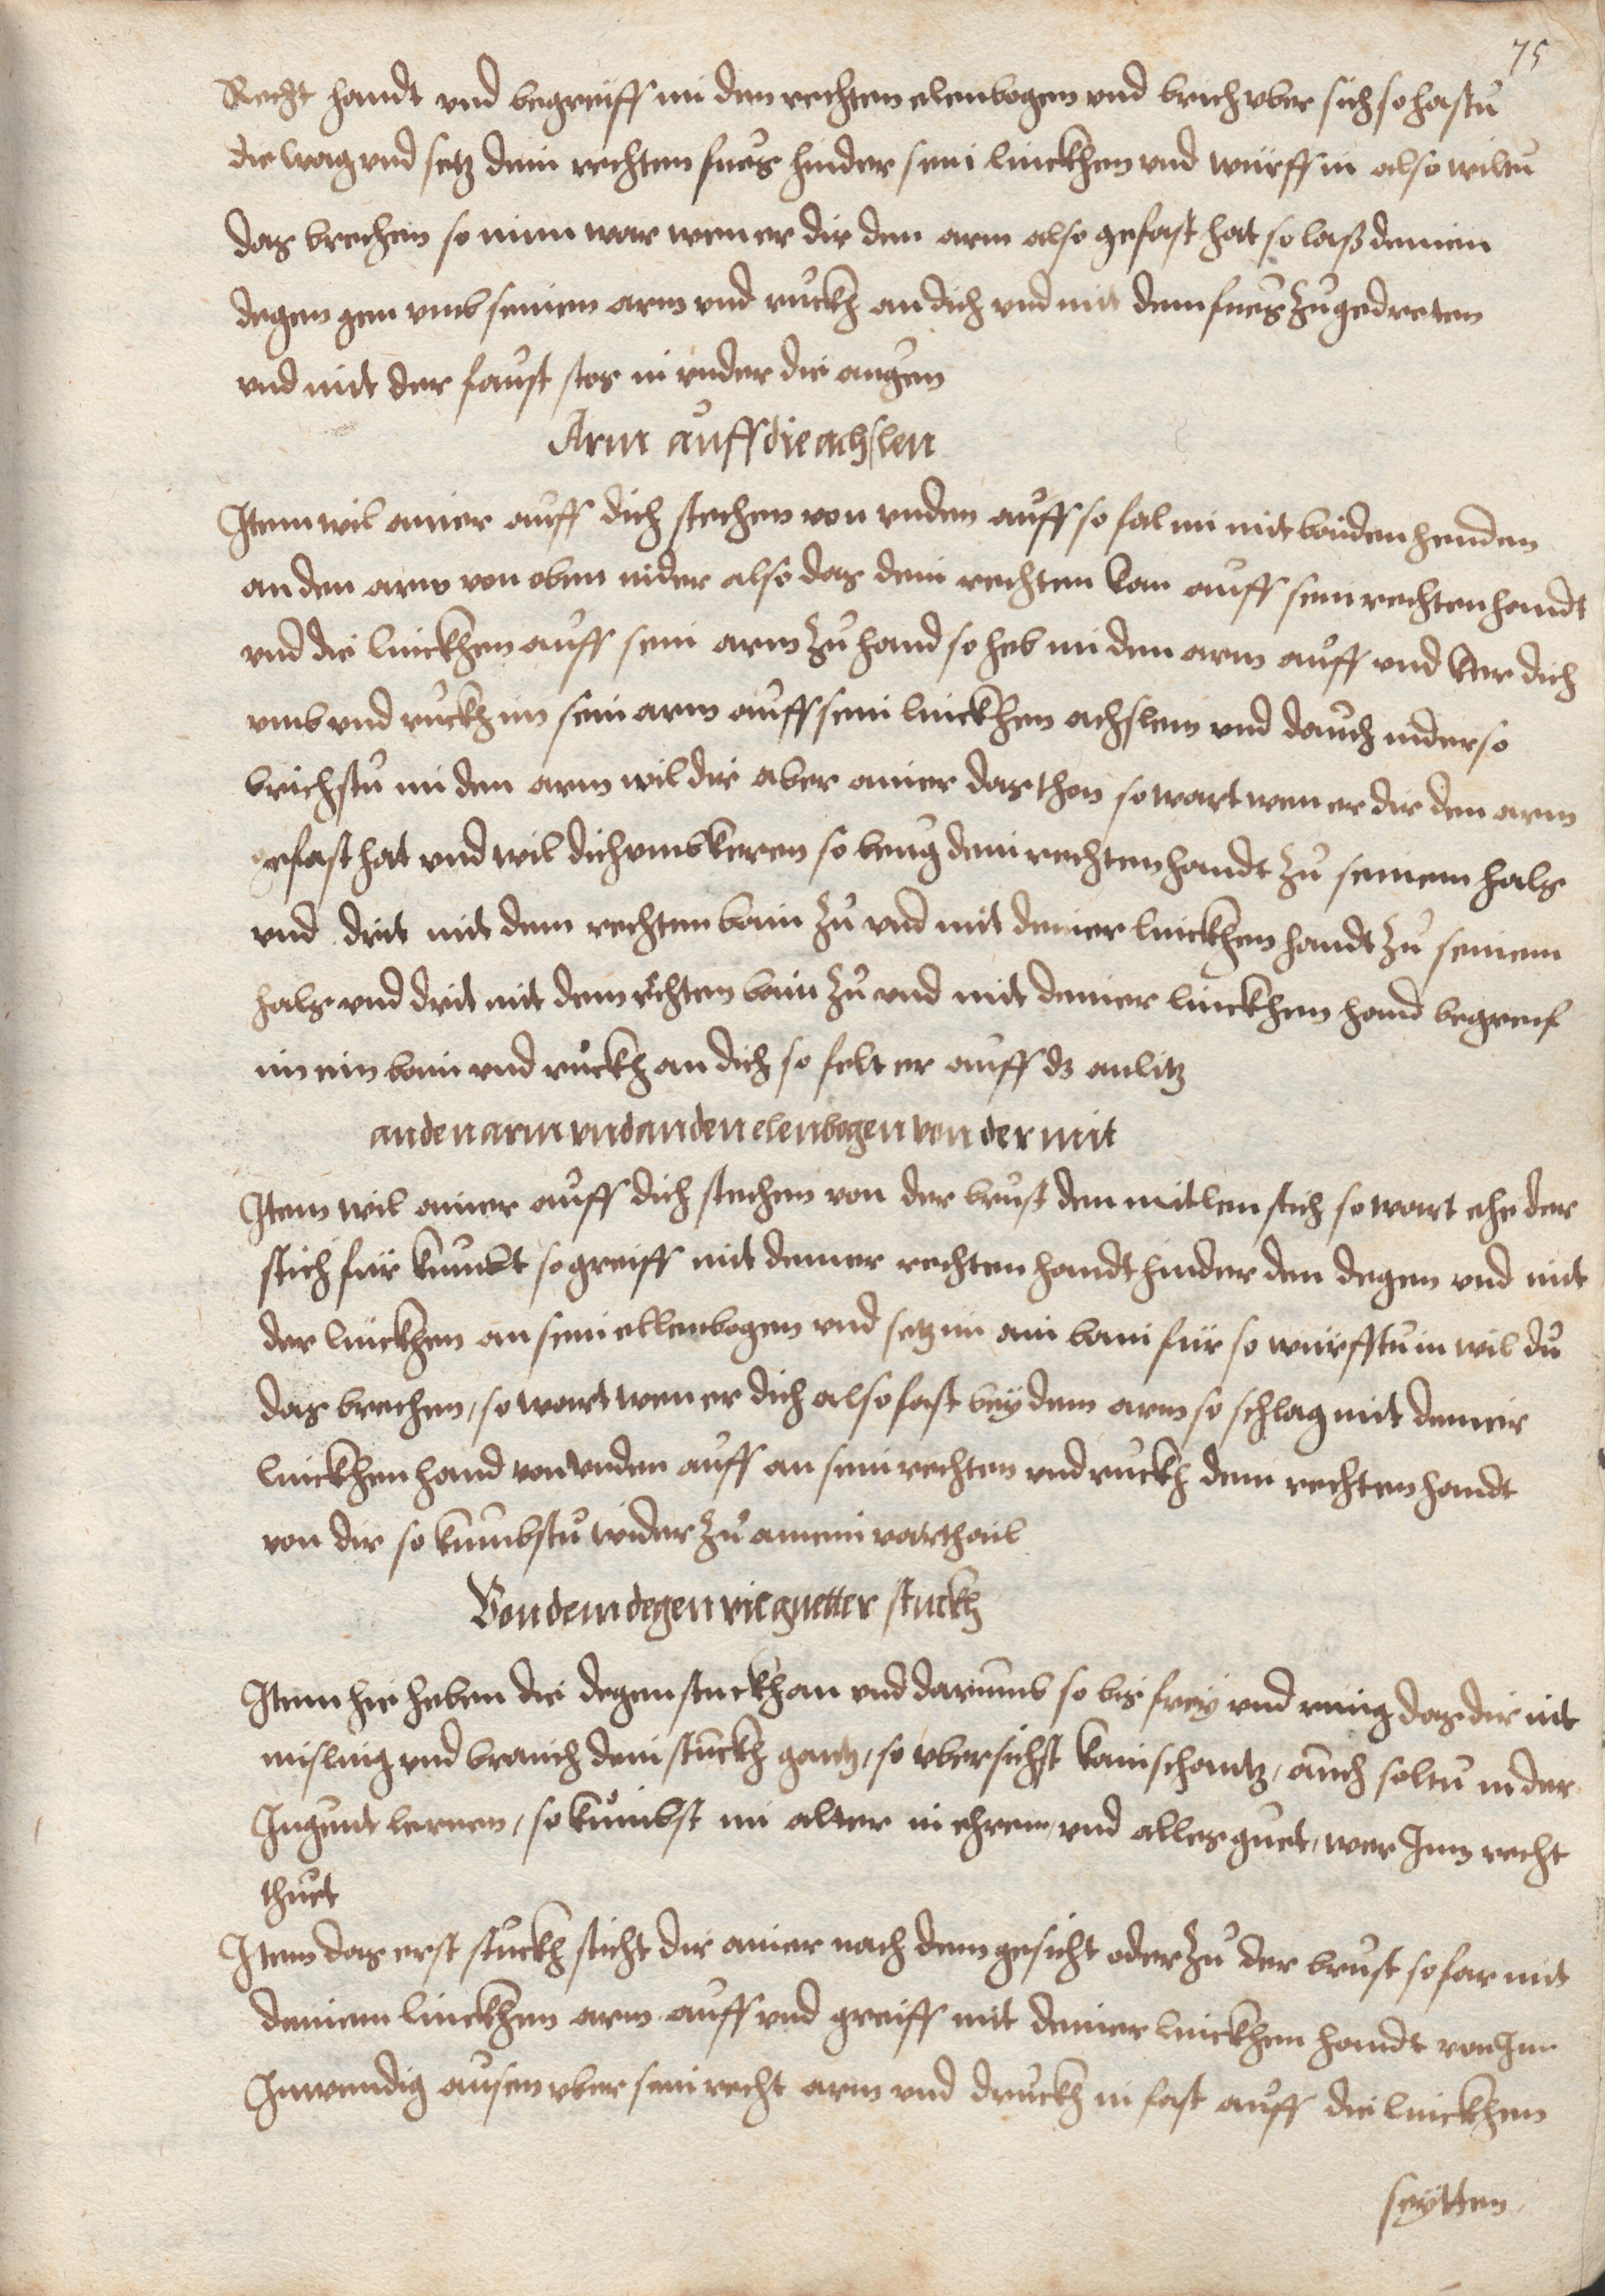 75
Recht handt vnd begreiff im den rechten elenbogen vnd brich vber sich so hastu
die wag vnd setz dein rechten fues hinder sein linckhen vnd würff in also wiltu
das brechen so nim war wen er dir den arm also gefast hat so laß deinen
degen gen vmb seinen arm vnd ruckh an dich vnd mit dem fues zu gedreten
vnd mit der faust stos in vnder die augen
Arm auff die achslen
Item wil ainer auff dich stechen von vnden auff so fal im mit baiden henden
an den arm von oben nider also das dein rechten kom auff sein rechten handt
vnd die linckhen auff sein arm zu hand so heb im den arm auff vnd ker dich
vmb vnd ruckh im sein arm auff sein linckhen achslem vnd dauch nider so
brichstu im den arm wil dir aber ainer das thon so wart wen er dir den arm
gefast hat vnd wil dich vmbkeren so beug dein rechten handt zu seinem hals
vnd drit mit dem rechten bain zu vnd mit deiner linckhen handt zu seinem
hals vnd drit mit dem rechten bain zu vnd mit deiner linckhen hand begreif
im ein bain vnd ruckh an dich so felt er auff dz anlitz
an den arm vnd an den elenbogen von der mit
Item wil ainer auff dich stechen von der brust den mitlen stich so wart ehe der
stich für kumbt so greiff mit deiner rechten handt hinder den degen vnd mit
der linckhen an sein ellenbogen vnd setz im ain bain für so würfftu in wil du
das brechen, so wart wen er dich also fast bey dem arm so schlag mit deineir
linckhen hand von vnden auff an sein rechten vnd ruckh dein rechten handt
von dir so kumbstu wider zu ainem vorthail
Von dem degen vil guetter stuckh
Item hie heben die degen stuckh an vnd darumb so bis frey vnd ring das dir nit
misling vnd brauch dein stuckh gantz, so vbersichst kain schantz, auch soltu in der
Jugent lernen, so kumbst im alter in ehren, vnd alles guet, wer Jm recht
thuet
Item das erst stuckh sticht dir ainer nach dem gesicht oder zu der brust so far mit
deinem linckhen arm auff vnd greiff mit deiner linckhen handt von Jn
Jnwendig ausen vber sein recht arm vnd druckh in fast auff die linckhen
seytten